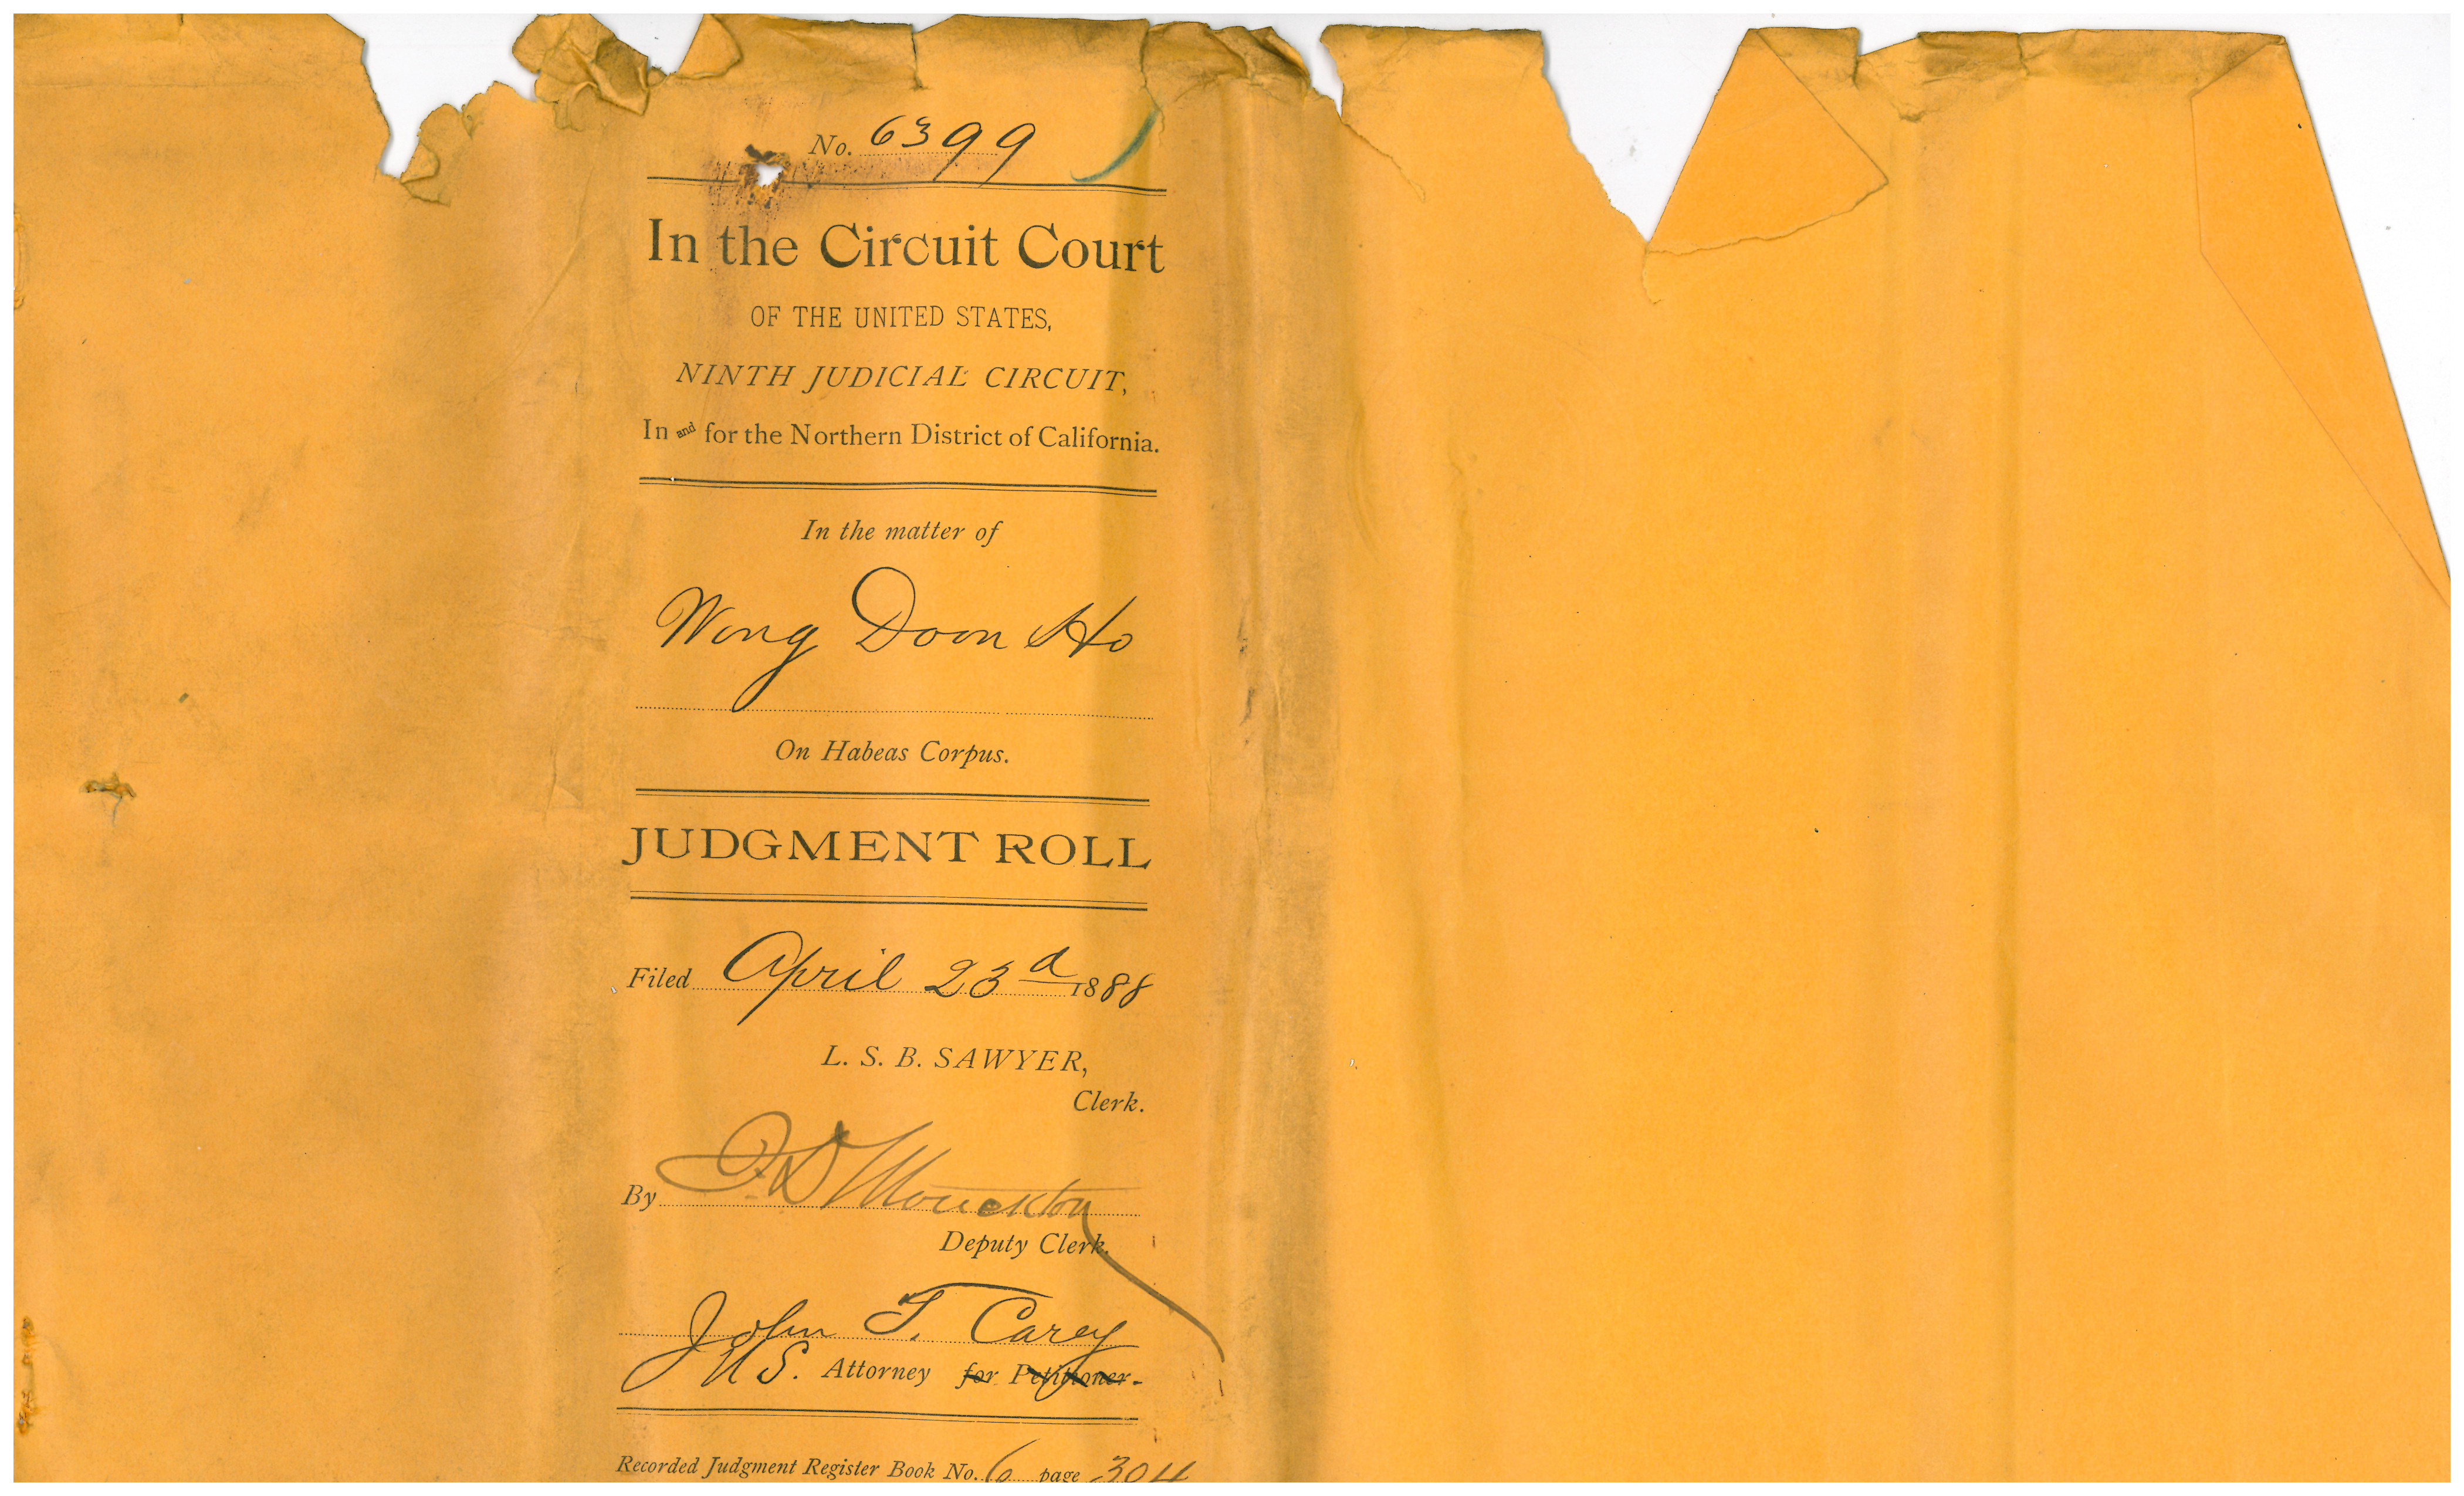 No. 6399
In the Circuit Court
OF THE UNITED STATES,
NINTH JUDICIAL CIRCUIT,
In and for the Northern District of California.
In the matter of
Wong Doon Ho
On Habeas Corpus.
JUDGMENT ROLL
Filed April 23d 1888
L. S. B. SAWYER,
Clerk.
By Monckton
Deputy Clerk.
John T. Carey
U S. Attorney for Petitioner.
Recorded Judgment Register Book No. 6 page 304